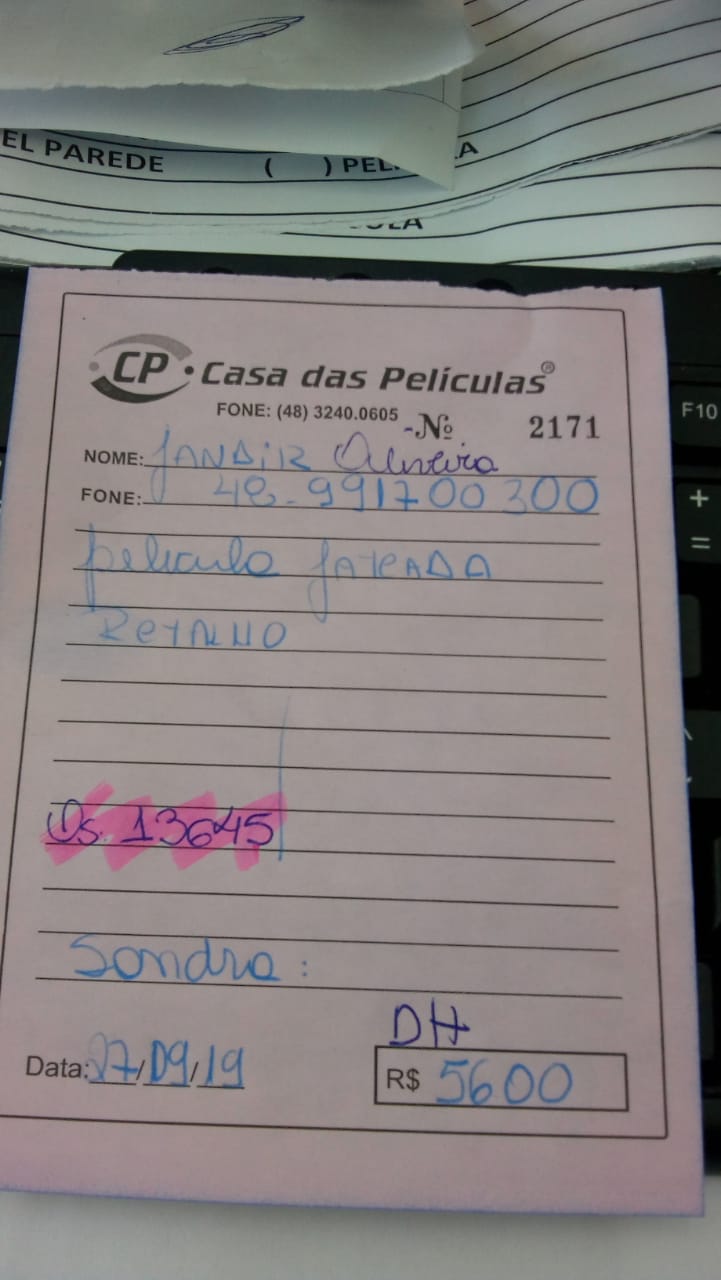 EL PAREDE ( ) PEL
A
CP Casa das Películas®
FONE: (48) 3240.0605 -Nº 2171
NOME: JANDIR Oliveira
FONE: 48-991700300
pelicula JATEADA
RETALHO
Os. 13645
Sandra:
DH
Data: 27/09/19 R$ 5600